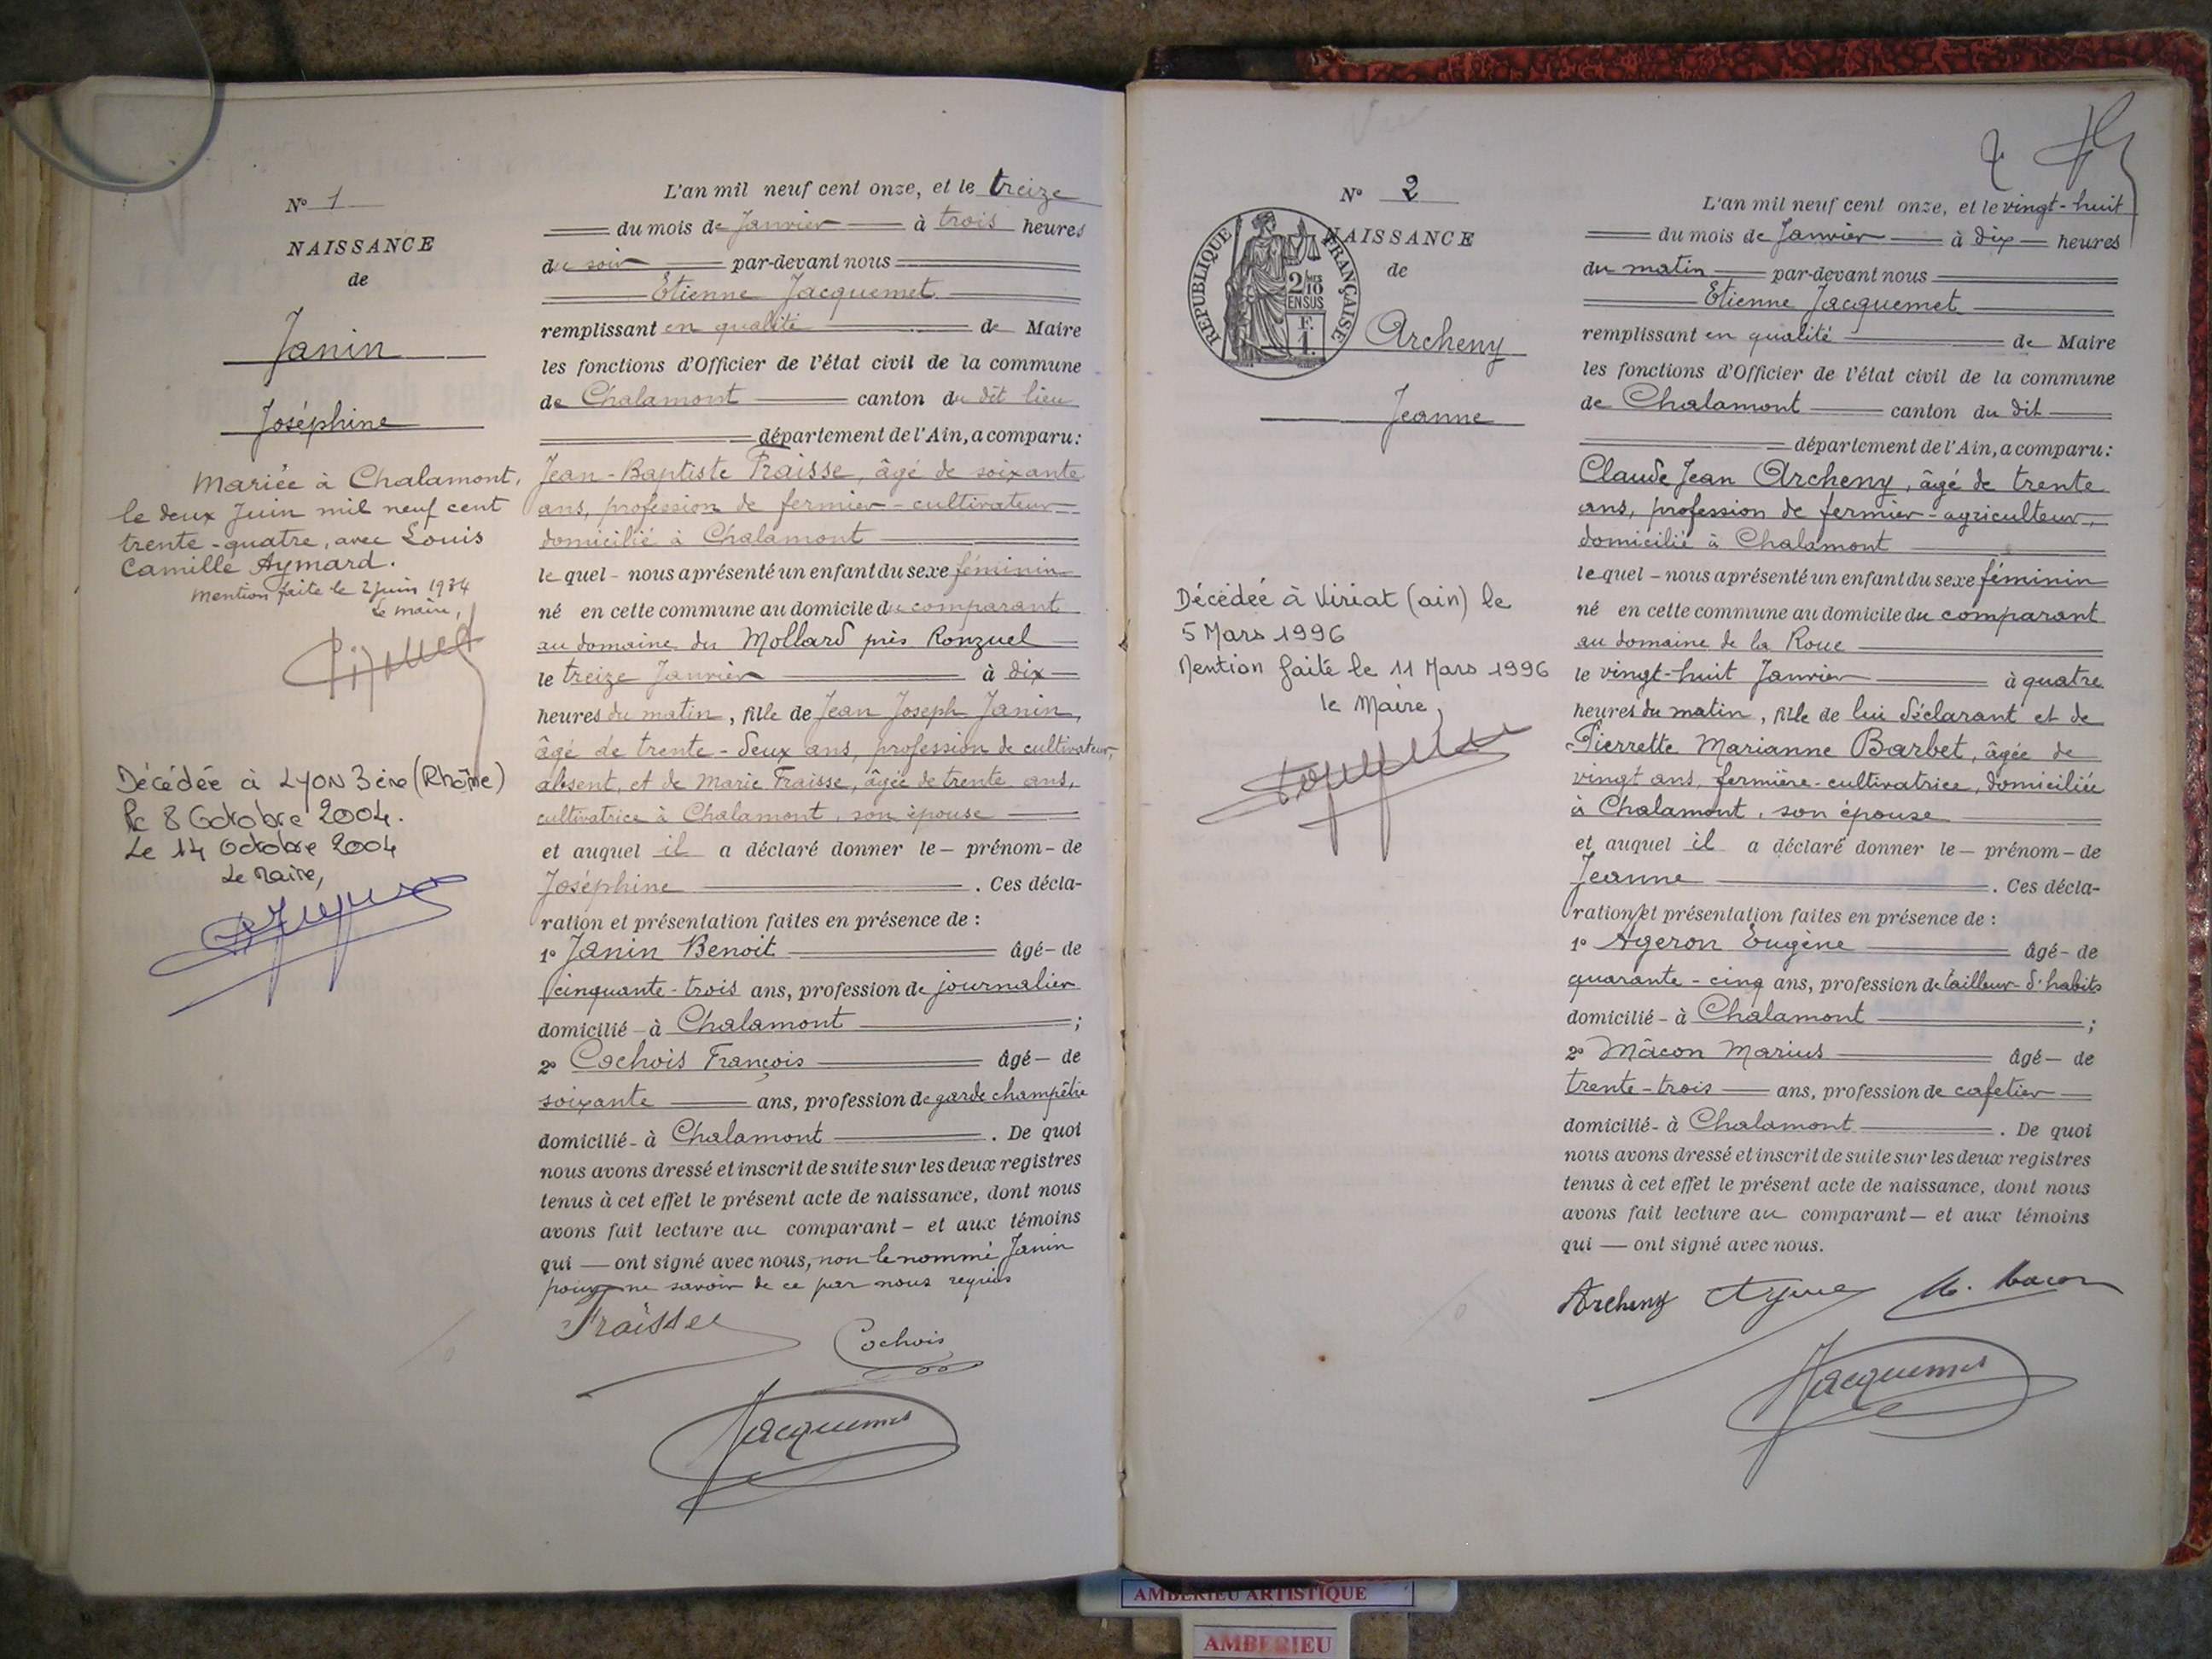 N° 1
NAISSANCE
de
Janin
Joséphine
Mariée à Chalamont,
le deux Juin mil neuf cent
trente-quatre, avec Louis
Camille Aymard.
Mention faite le 2 juin 1934
Le maire,
Décédée à LYON 3ème (Rhône)
le 8 Octobre 2004.
Le 14 Octobre 2004
Le Maire,
L'an mil neuf cent onze, et le treize
du mois de Janvier à trois heures
du soir par-devant nous
Etienne Jacquemet
remplissant en qualité de Maire
les fonctions d'Officier de l'état civil de la commune
de Chalamont canton du dit lieu
département de l'Ain, a comparu:
Jean-Baptiste Fraisse, âgé de soixante
ans, profession de fermier-cultivateur
domicilié à Chalamont
le quel - nous a présenté un enfant du sexe féminin
né en cette commune au domicile du comparant
au domaine du Mollard près Ronzuel
le treize Janvier à dix
heures du matin, fille de Jean Joseph Janin,
âgé de trente-deux ans, profession de cultivateur,
absent, et de Marie Fraisse, âgée de trente ans,
cultivatrice à Chalamont, son épouse
et auquel il a déclaré donner le - prénom - de
Joséphine . Ces décla-
ration et présentation faites en présence de :
1° Janin Benoit âgé - de
cinquante-trois ans, profession de journalier
domicilié - à Chalamont ;
2° Cochois François âgé - de
soixante ans, profession de garde champêtre
domicilié - à Chalamont . De quoi
nous avons dressé et inscrit de suite sur les deux registres
tenus à cet effet le présent acte de naissance, dont nous
avons fait lecture au comparant - et aux témoins
qui — ont signé avec nous, non le nommé Janin
pour ne savoir de ce par nous requis
Fraisse
Cochois
Jacquemet
N° 2
NAISSANCE
de
REPUBLIQUE FRANÇAISE
2/10 EN SUS
F. 1.
Archeny
Jeanne
Décédée à Viriat (ain) le
5 Mars 1996
Mention faite le 11 Mars 1996
le Maire,
L'an mil neuf cent onze, et le vingt-huit
du mois de Janvier à dix heures
du matin par-devant nous
Etienne Jacquemet
remplissant en qualité de Maire
les fonctions d'Officier de l'état civil de la commune
de Chalamont canton du dit
département de l'Ain, a comparu:
Claude Jean Archeny, âgé de trente
ans, profession de fermier-agriculteur,
domicilié à Chalamont
le quel - nous a présenté un enfant du sexe féminin
né en cette commune au domicile du comparant
au domaine de la Roue
le vingt-huit Janvier à quatre
heures du matin, fille de lui déclarant et de
Pierrette Marianne Barbet, âgée de
vingt ans, fermière-cultivatrice, domiciliée
à Chalamont, son épouse
et auquel il a déclaré donner le - prénom - de
Jeanne . Ces décla-
ration et présentation faites en présence de :
1° Ageron Eugène âgé - de
quarante-cinq ans, profession de tailleur d'habits
domicilié - à Chalamont ;
2° Mâcon Marius âgé - de
trente-trois ans, profession de cafetier
domicilié - à Chalamont . De quoi
nous avons dressé et inscrit de suite sur les deux registres
tenus à cet effet le présent acte de naissance, dont nous
avons fait lecture au comparant - et aux témoins
qui — ont signé avec nous.
Archeny M. Macon
Jacquemet
AMBERIEU ARTISTIQUE
AMBERIEU